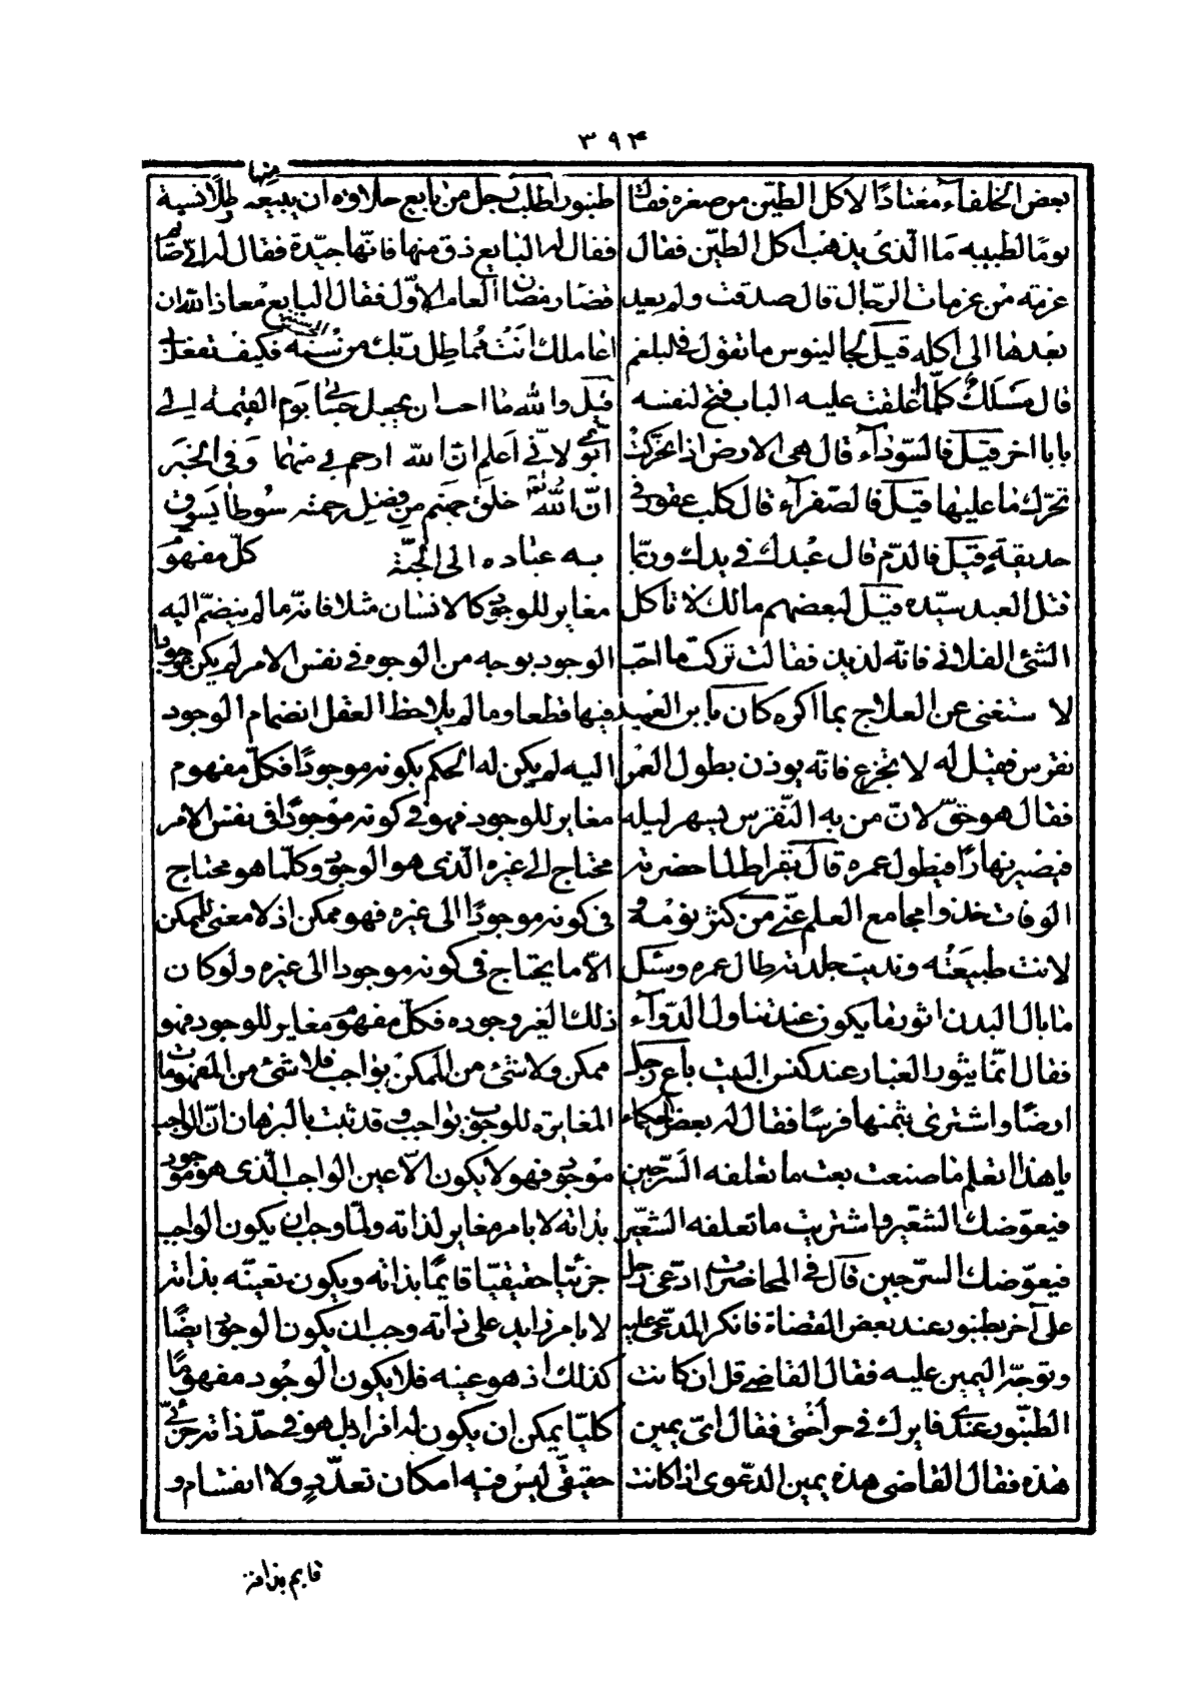 ٣٩۴
بعض الخلفاء معتادًا لاكل الطين من صغره فقال
يومًا لطبيبه ما الّذى يذهب اكل الطّين فقال
عزمة من عزمات الرّجال قال صدقت ولم يعد
بعدها الى اكله قيل لجالينوس ما تقول فى البلغم
قال مسلك كلّما اغلقت عليه الباب فتح لنفسه
بابا اخر قيل فالسّوداء قال هى الارض اذا تحرّكت
تحرّك ما عليها قيل فالصّفراء قال كلب عقور فى
حديقة قيل فالدّم قال عبدك فى يدك وربّما
قتل العبد سيّده قيل لبعضهم مالك لا تاكل
الشئ الفلانى فانه لذيذ فقالت تركت ما احبّ
لا ستغنى عن العلاج بما اكره كان بابن العميد
نقرس فقيل له لا تجزع فانّه يوذن بطول العمر
فقال هو حقّ لانّ من به النّقرس يسهر ليله
فيصير نهارًا فيطول عمره قال بقراط لما حضرته
الوفات خذوا مجامع العلم عنّى من كثر نومه
لانت طبيعته ونديت جلدته طال عمره وسئل
ما بال البدن اثور ما يكون عند تناول الدّواء
فقال انّما يثور الغبار عند كنس البيت باع رجل
ارضًا واشترى بثمنها فرسًا فقال له بعض الحكماء
يا هذا اتعلم ما صنعت بعت ما تعلفه السّرجين
فيعوّضك الشعير واشتريت ما تعلفه الشّعير
فيعوّضك السرّجين قال فى المحاضرات ادّعى رجل
على آخر بطنبور عند بعض القضاة فانكر المدّعى عليه
وتوجّه اليمين عليه فقال القاضى قل ان كانت
الطنّبور عندك فايرك فى حر اختى فقال اىّ يمين
هذه فقال القاضى هذه يمين الدّعوى اذا كانت
طنبورا طلب رجل من بايع حلاوة ان يبيعه منها رطلًا نسية
فقال له البايع ذق منها فانّها جيّدة فقال له انّى صائم
قضاء رمضان العام الاوّل فقال البايع معاذ الله ان
اعاملك انت تماطل ربّك من سنة الى سنة فكيف تفعل بى
قيل والله ما احب ان يجعل حسابى يوم القيمة الى
ابوىّ لانّى اعلم انّ الله ارحم بى منهما وفى الخبر
انّ الله تعالى خلق جهنم من فضل رحمته سوطا يسوق
به عباده الى الجنّة كلّ مفهوم
مغاير للوجود كالانسان مثلا فانّه ما لم ينضمّ اليه
الوجود بوجه من الوجوه فى نفس الامر لم يكن موجودا
فيها قطعا وما لم يلاحظ العقل انضمام الوجود
اليه لم يكن له الحكم بكونه موجودًا فكلّ مفهوم
مغاير للوجود فهو فى كونه موجودًا فى نفس الامر
محتاج الى غيره الّذى هو الوجود وكلّما هو محتاج
فى كونه موجودًا الى غيره فهو ممكن اذ لا معنى للممكن
الّا ما يحتاج فى كونه موجودا الى غيره ولو كان
ذلك الغير وجوده فكلّ مفهوم مغاير للوجود فهو
ممكن ولا شئ من الممكن بواجب فلا شئ من المفهومات
المغايرة للوجود بواجب وقد ثبت بالبرهان انّ الواجب
موجود فهو لا يكون الّا عين الواجب الّذى هو موجود
بذاته لا بامر مغاير لذاته ولمّا وجب ان يكون الواجب
جزئيّا حقيقيّا قايمًا بذاته ويكون تعيّنه بذاته
لا بامر زايد على ذاته وجب ان يكون الوجود ايضًا
كذلك اذ هو عينه فلا يكون الوجود مفهومًا
كليّا يمكن ان يكون له افراد بل هو فى حدّ ذاته جزئىّ
حقيقىّ ليس فيه امكان تعدّد ولا انقسام و
قايم بذاته